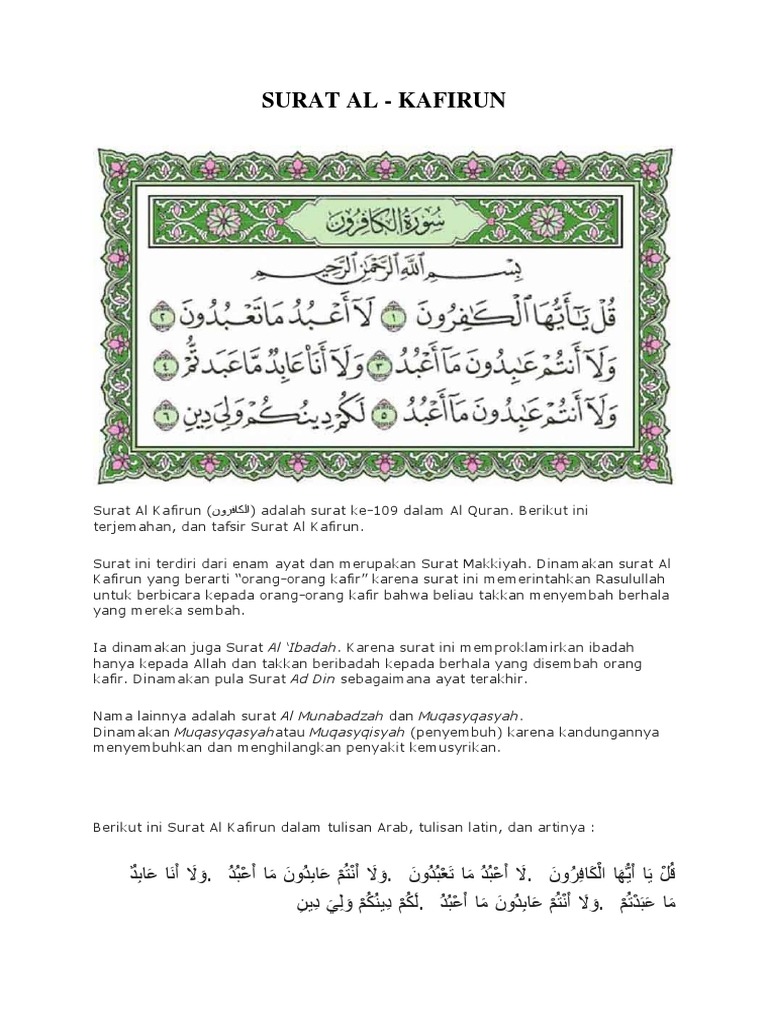 SURAT AL - KAFIRUN
سُورَةُ الْكَافِرُونَ
بِسْمِ اللَّهِ الرَّحْمَٰنِ الرَّحِيمِ
قُلْ يَٰٓأَيُّهَا ٱلْكَٰفِرُونَ ١ لَآ أَعْبُدُ مَا تَعْبُدُونَ ٢
وَلَآ أَنتُمْ عَٰبِدُونَ مَآ أَعْبُدُ ٣ وَلَآ أَنَا۠ عَابِدٌ مَّا عَبَدتُّمْ ٤
وَلَآ أَنتُمْ عَٰبِدُونَ مَآ أَعْبُدُ ٥ لَكُمْ دِينُكُمْ وَلِىَ دِينِ ٦
Surat Al Kafirun (الكافرون) adalah surat ke-109 dalam Al Quran. Berikut ini
terjemahan, dan tafsir Surat Al Kafirun.
Surat ini terdiri dari enam ayat dan merupakan Surat Makkiyah. Dinamakan surat Al
Kafirun yang berarti “orang-orang kafir” karena surat ini memerintahkan Rasulullah
untuk berbicara kepada orang-orang kafir bahwa beliau takkan menyembah berhala
yang mereka sembah.
Ia dinamakan juga Surat Al ‘Ibadah. Karena surat ini memproklamirkan ibadah
hanya kepada Allah dan takkan beribadah kepada berhala yang disembah orang
kafir. Dinamakan pula Surat Ad Din sebagaimana ayat terakhir.
Nama lainnya adalah surat Al Munabadzah dan Muqasyqasyah.
Dinamakan Muqasyqasyahatau Muqasyqisyah (penyembuh) karena kandungannya
menyembuhkan dan menghilangkan penyakit kemusyrikan.
Berikut ini Surat Al Kafirun dalam tulisan Arab, tulisan latin, dan artinya :
قُلْ يَا أَيُّهَا الْكَافِرُونَ . لَا أَعْبُدُ مَا تَعْبُدُونَ . وَلَا أَنْتُمْ عَابِدُونَ مَا أَعْبُدُ . وَلَا أَنَا عَابِدٌ
مَا عَبَدْتُمْ . وَلَا أَنْتُمْ عَابِدُونَ مَا أَعْبُدُ . لَكُمْ دِينُكُمْ وَلِيَ دِينِ